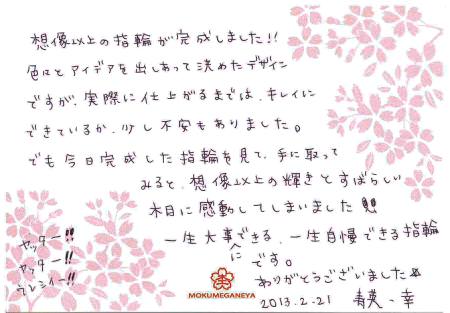 想像以上の指輪が完成しました!!
色々とアイデアを出しあって決めたデザイン
ですが、実際に仕上がるまでは、キレイに
できているか、少し不安もありました。
でも今日完成した指輪を見て、手に取って
みると、想像以上の輝きとすばらしい
木目に感動してしまいました!!
一生大事にできる、一生自慢できる指輪
です。
ありがとうございました
ヤッター!!
ヤッター!!
ウレシイー!!
MOKUMEGANEYA
2013.2.21
幸